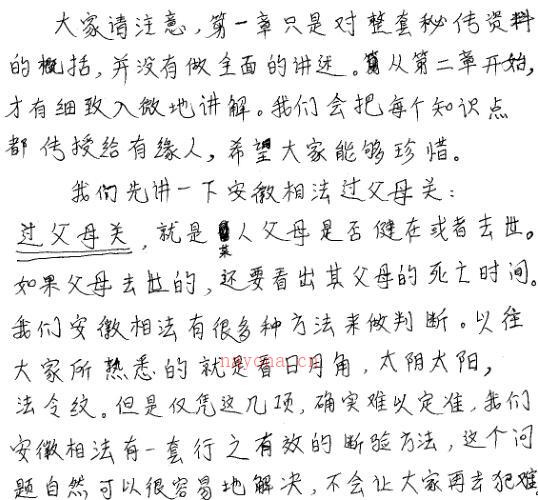 大家请注意，第一章只是对整套秘传资料
的概括，并没有做全面的讲述。从第二章开始，
才有细致入微地讲解。我们会把每个知识点
都传授给有缘人，希望大家能够珍惜。
我们先讲一下安徽相法过父母关：
过父母关，就是某人父母是否健在或者去世。
如果父母去世的，还要看出其父母的死亡时间。
我们安徽相法有很多种方法来做判断。以往
大家所熟悉的就是看日月角，太阴太阳，
法令纹。但是仅凭这几项，确实难以定准，我们
安徽相法有一套行之有效的断验方法，这个问
题自然可以很容易地解决，不会让大家再去犯难